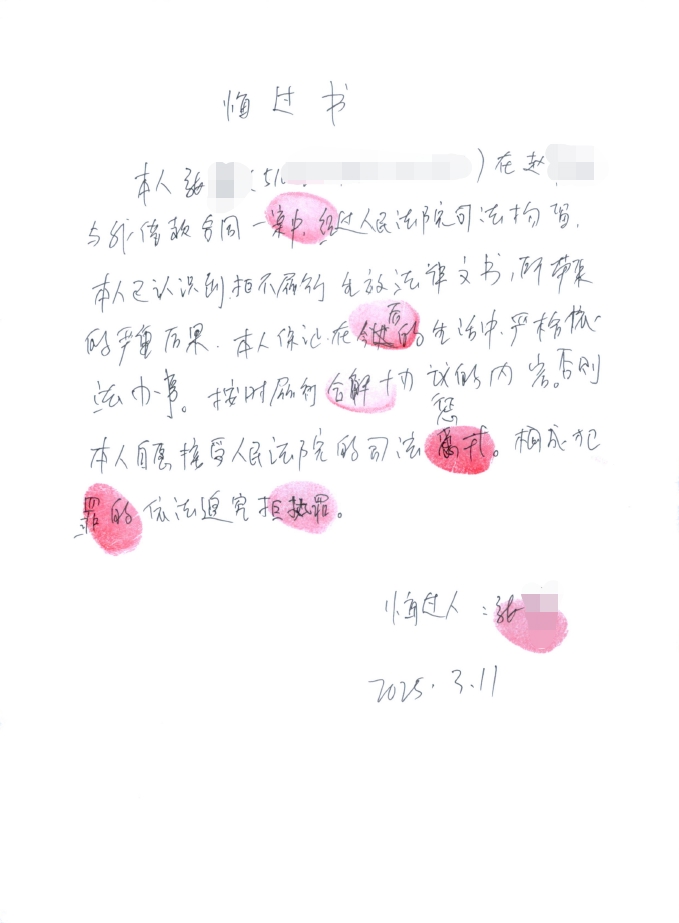 悔过书
本人张（511）在赵
与我借款合同一案中，经过人民法院司法拘留，
本人已认识到拒不履行生效法律文书，所带来
的严重后果。本人保证在今后的生活中，严格依
法办事。按时履行合解协议的内容。否则
本人自愿接受人民法院的司法惩戒。构成犯
罪的依法追究拒执罪。
悔过人：张
2025.3.11